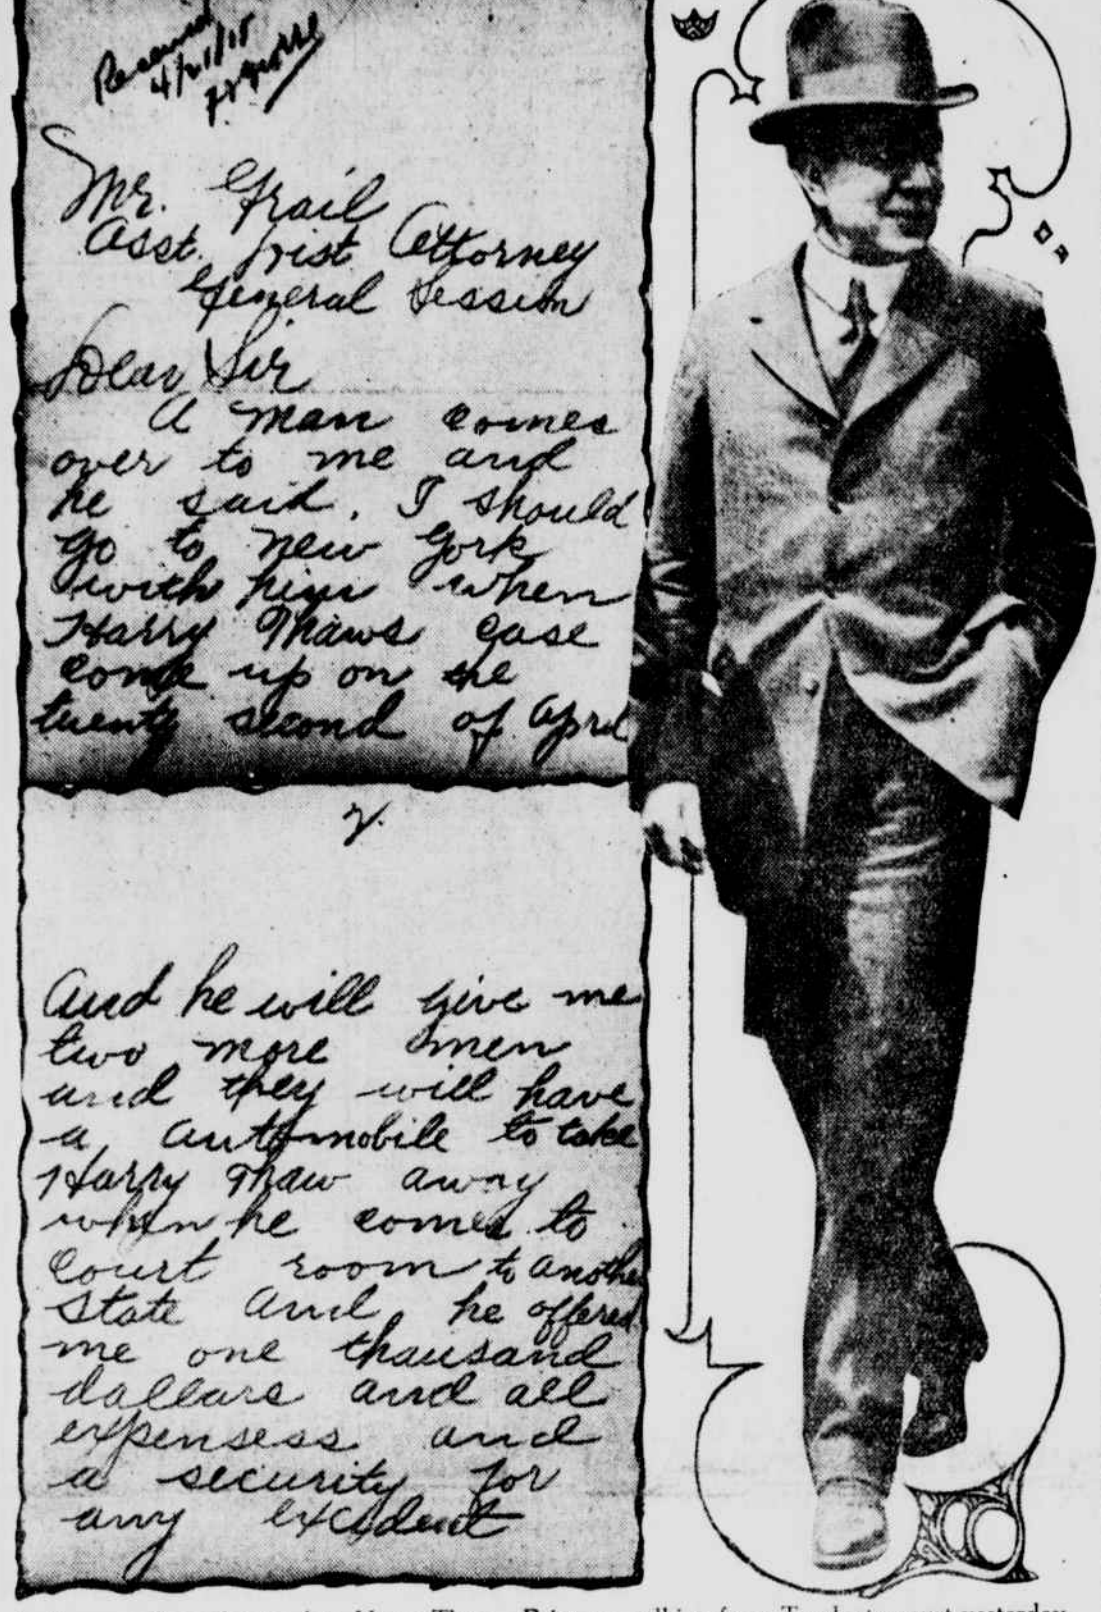 Received
4/21/15
Mr. Grail
Asst. Dist Attorney
General Session
Dear Sir
A man comes
over to me and
he said. I should
go to new York
with him when
Harry Thaws case
come up on the
twenty second of April
2.
And he will give me
two more men
and they will have
a automobile to take
Harry Thaw away
when he comes to
Court room to another
State And he offered
me one thousand
dollars and all
expensess and
a security for
any excedent